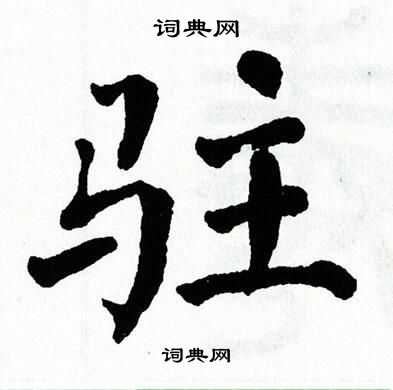 词典网
驻
词典网